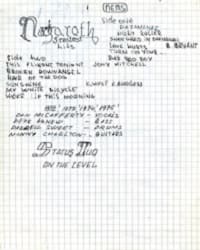 NEMS
Nazaroth
Greatest
hits
Side one
RAZAMANAZ
HOLY ROLLER
SHANGHAI'D IN SHANGHAI
LOVE HURTS B. BRYANT
TURN ON YOUR
BAD BAD BOY
Side two
THIS FLIGHT TONIGHT JONI MITCHELL
BROKEN DOWN ANGEL
HAIR OF THE DOG
SUNSHINE
MY WHITE BICYCLE
WOKE UP THIS MORNING
DAN McCAFFERTY - VOCALS
PETE AGNEW - BASS
DARRELL SWEET - DRUMS
MANNY CHARLTON - GUITARS
Status Quo
ON THE LEVEL